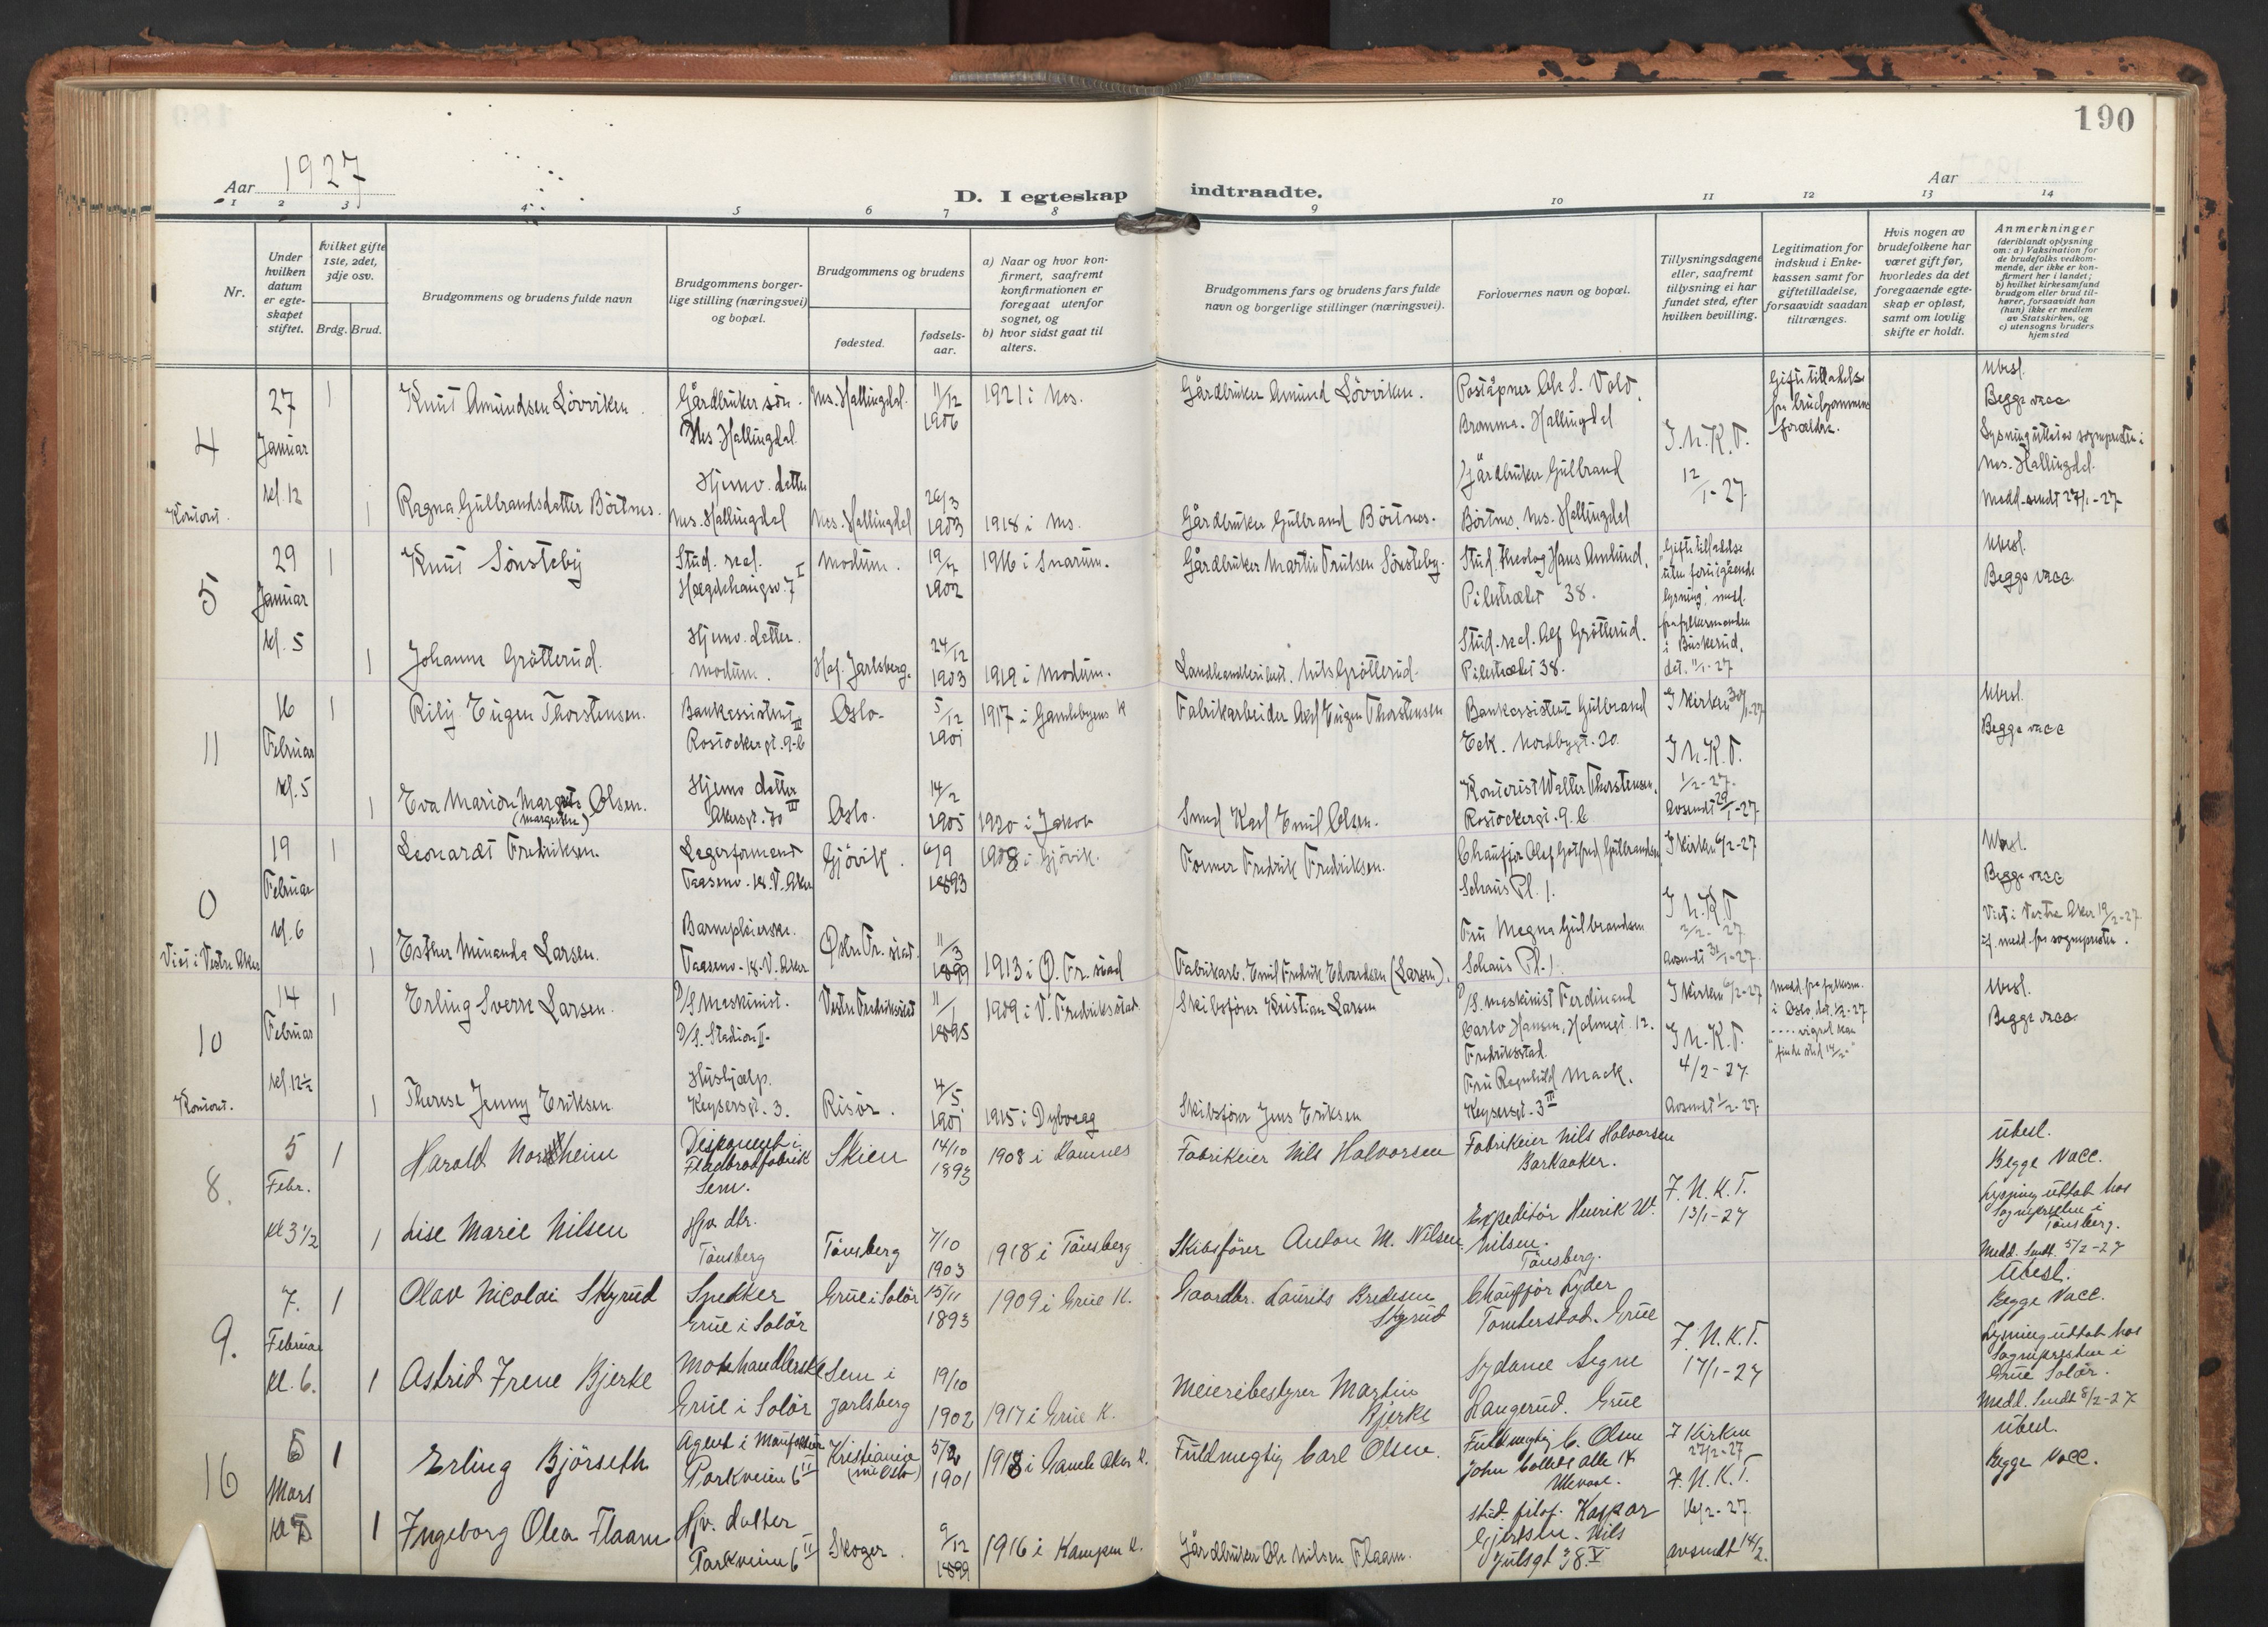 190
Aar 1927
Aar
D. I egteskap indtraadte.
1 2 3 4 5 6 7 8 9 10 11 12 13 14
Nr.
Under hvilken datum er egte- skapet stiftet.
hvilket gifte 1ste, 2det, 3dje osv.
Brdg. Brud.
Brudgommens og brudens fulde navn
Brudgommens borger- lige stilling (næringsvei) og bopæl.
Brudgommens og brudens
fødested.
fødsels- aar.
a) Naar og hvor kon- firmert, saafremt konfirmationen er foregaat utenfor sognet, og
b) hvor sidst gaat til alters.
Brudgommens fars og brudens fars fulde navn og borgerlige stillinger (næringsvei).
Forlovernes navn og bopæl.
Tillysningsdagene eller, saafremt tillysning ei har fundet sted, efter hvilken bevilling.
Legitimation for indskud i Enke- kassen samt for giftetilladelse, forsaavidt saadan tiltrænges.
Hvis nogen av brudefolkene har været gift før, hvorledes da det foregaaende egte- skap er opløst, samt om lovlig skifte er holdt.
Anmerkninger
(deriblandt oplysning om: a) Vaksination for de brudefolks vedkom- mende, der ikke er kon- firmert her i landet; b) hvilket kirkesamfund brudgom eller brud til- hører, forsaavidt han (hun) ikke er medlem av Statskirken, og c) utensogns bruders hjemsted
4
Kontoret.
27 Januar kl. 12
1
Knut Amundsen Lövviken.
Gårdbruker søn. Nes. Hallingdal.
Nes. Hallingdal.
11/12 1906
1921 i Nes.
Gårdbruker Amund Lövviken.
Poståpner Ole S. Vold, Bromma. Hallingdal
I.N.K.T. 12/1-27
Giftetilladelse fra brudgommens forældre.
Ubesl.
Begge vacc
Lysning uttat av sogneprästen i Nes. Hallingdal.
Medd. sendt 27/1-27
1
Ragna Gulbrandsdatter Börtnes.
Hjemv. datter Nes. Hallingdal
Nes. Hallingdal
26/3 1903
1918 i Nes.
Gårdbruker Gulbrand Börtnes.
Gårdbruker Gulbrand Börtnes, Nes. Hallingdal
5
29 Januar kl. 5
1
Knut Sönsteby
Stud. real. Hægdehaugsv. 7 I
Modum.
19/7 1902
1916 i Snarum.
Gårdbruker Martin Trulsen Sönsteby.
Stud. theolog Hans Amlund, Pilestrædet 38.
"Giftetilladelse uten forutgående lysning" medd. fra fylkesmanden i Buskerud, dat. 11/1-27
Ubesl.
Begge vacc
1
Johanne Grötterud.
Hjemv. datter. Modum.
Hof. Jarlsberg.
24/12 1903
1919 i Modum.
Landhandleribest. Nils Grötterud.
Stud. real. Alf Grötterud. Pilestrædet 38.
11
16 Februar kl. 5
1
Rily Eugen Thorstensen.
Bankassistent Rostockergt. 9-b III
Oslo.
5/12 1901
1917 i Gamlebyens K
Fabrikarbeider Axel Eugen Thorstensen
Bankassistent Gulbrand Eek. Nordbygt. 20.
I Kirken 30/1-27
I N.K.T. 1/2-27.
Avsendt 29/1-27
Ubesl.
Begge vacc
1
Eva Marion Margrete Olsen.
(Margrethe)
Hjemv datter Akersgt. 70 III
Oslo.
14/2 1905
1920 i Jakob
Smed Karl Emil Olsen.
Kontorist Walter Thorstensen, Rostockergt. 9. b
0
Viet i Vestre Aker
19 Februar kl. 6
1
Leonardt Fredriksen.
Lagerformand Taasenv. 18. V. Aker
Gjövik.
6/9 1893
1908 i Gjövik.
Former Fredrik Fredriksen.
Chauffør Olaf Gotfred Gulbrandsen Schaus Pl. 1.
I kirken 6/2-27
I N.K.T 2/2-27
Avsendt 31/1-27.
Ubesl.
Begge vacc
Viet i Vestre Aker 19/2-27 if. medd. fra sogneprästen.
1
Esther Minanda Larsen.
Barnepleierske. Taasenv. 18. V. Aker
Östre Fr. stad.
11/3 1899
1913 i Ö. Fr. stad
Fabrikarb. Emil Fredrik Edvardsen (Larsen).
Fru Magna Gulbrandsen Schaus Pl. 1
10
Kontoret.
14 Februar kl. 12½
1
Erling Sverre Larsen.
D/S. Maskinist. D/S. Stadion II.
Vestre Fredriksstad
11/1 1895
1909 i V. Fredriksstad.
Skibsfører Kristian Larsen
D/S. maskinist Ferdinand Carlo Hansen, Holmegt. 12. Fredriksstad.
I kirken 6/2-27
I.N.K.T. 4/2-27.
Avsendt 1/2-27.
Medd. fra fylkesm. i Oslo, dat. 1/2-27 .... vigsel kan finde sted 14/2."
Ubesl.
Begge vacc
1
Therese Jenny Eriksen
Hushjælp. Keysersgt. 3.
Risör.
4/5 1901
1915 i Dybvaag
Skibsfører Jens Eriksen
Fru Ragnhild Mack. Keysersgt. 3 III
8.
5 Febr. Kl 3 1/2
1
Harald Nordheim
Disponent i Fladbrødfabrik Sem.
Skien
14/10 1893
1908 i Ramnes
Fabrikeier Nils Halvorsen
Fabrikeier Nils Halvorsen Barkaaker.
I.N.K.T. 13/1-27
Ubesl.
Begge Vacc.
Lysning uttat hos Sogneprästen i Tönsberg.
Medd. Sendt. 5/2-27
1
Lise Marie Nilsen
Hjv. dtr. Tönsberg
Tönsberg
7/10 1903
1918 i Tönsberg
Skibsförer Anton M. Nilsen
Expeditör Henrik W. Nilsen. Tönsberg.
9.
7. Februar Kl. 6.
1
Olav Nicolai Skyrud
Snekker Grue i Solör
Grue i Solör
15/11 1893
1909 i Grue K.
Gaardbr. Laurits Bredesen Skyrud
Chauffør Lyder Tomterstad. Grue
I.N.K.T. 17/1-27
Ubesl.
Begge Vacc.
Lysning uttat hos Sogneprästen i Grue Solör.
Medd. Sendt 8/2-27
1
Astrid Irene Bjerke
Motehandlerske Grue i Solör
Sem i Jarlsberg
19/10 1902
1917 i Grue K.
Meieribestyrer Martin Bjerke
Sydame Signe Langerud. Grue
16
5 Mars Kl 5
1
Erling Björseth
Agent i Manufaktur Parkveien 6 II
Kristiania (nu Oslo)
5/2 1901
1918 i Gamle Aker K.
Fuldmegtig Carl Olsen.
Fuldmegtig C. Olsen John Colletts alle 14 Ullevaal.
I Kirken 27/2-27
I.N.K.T. 16/2-27.
avsendt 14/2.
Ubesl.
Begge Vacc.
1
Ingeborg Olea Flaam
Hjv. datter Parkveien 6 II
Skoger.
9/12 1899
1916 i Kampen K.
Gårdbruker Ole Nilsen Flaam.
Stud. filol. Kaspar Gjertsen. Nils Juelsgt 38. V